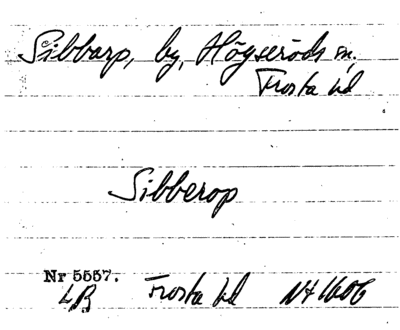 Sibbarp, by, Högseröds sn,
Frosta hd
Sibberop
Nr 5557.
LB Frosta hd Nt 1606